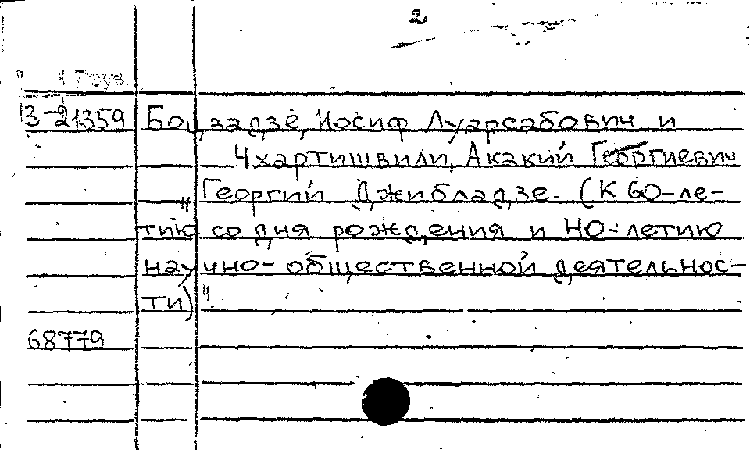 2
3-21359 Боцвадзе, Иосиф Луарсабович и
Чхартишвили, Акакий Георгиевич
"Георгий Джибладзе. (К 60-ле-
тию со дня рождения и 40-летию
научно-общественной деятельнос-
ти)"
68779